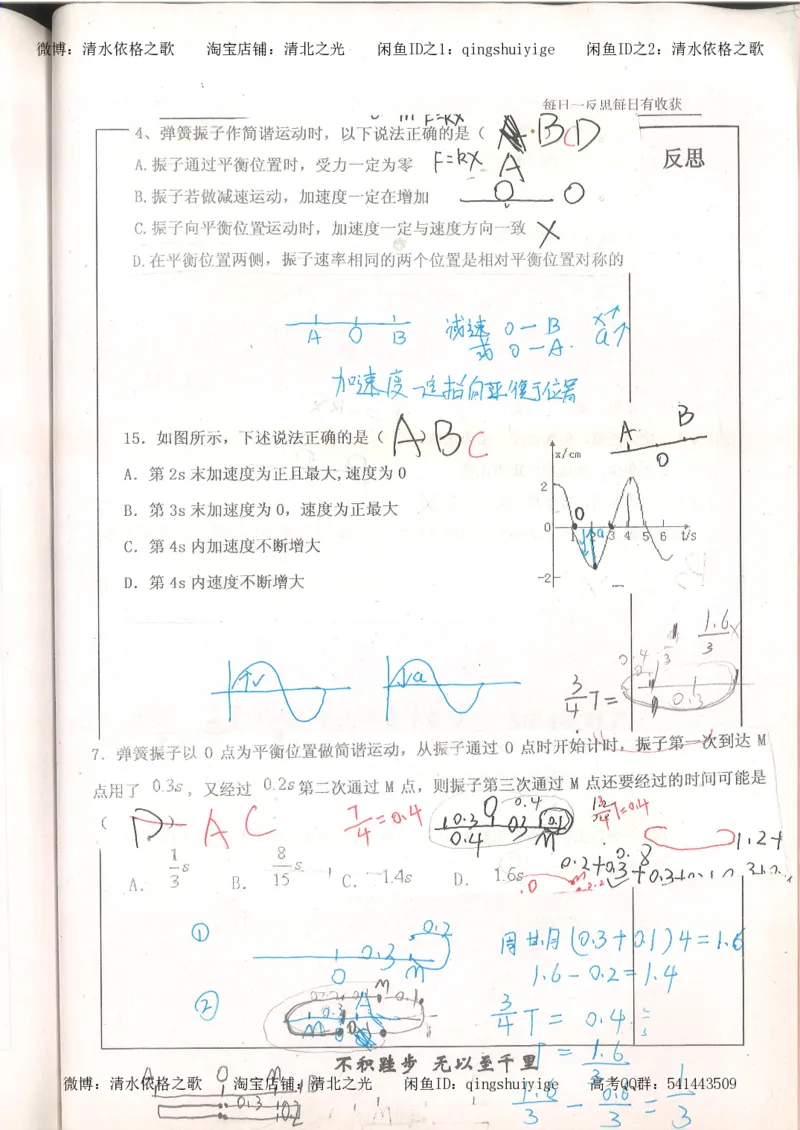 微博：清水依格之歌 淘宝店铺：清北之光 闲鱼ID之1：qingshuiyige 闲鱼ID之2：清水依格之歌
每日一反思每日有收获
F=kx
4、弹簧振子作简谐运动时，以下说法正确的是（ A BCD
反思
A.振子通过平衡位置时，受力一定为零 F=kx A
B.振子若做减速运动，加速度一定在增加 O O
C.振子向平衡位置运动时，加速度一定与速度方向一致 X
D.在平衡位置两侧，振子速率相同的两个位置是相对平衡位置对称的
A O B 减速 O－B x↑
或 O－A. a↑
加速度一定指向平衡位置
15．如图所示，下述说法正确的是（ABC
A B
O
x/cm
A．第 2s 末加速度为正且最大,速度为 0
2
B．第 3s 末加速度为 0，速度为正最大
O
0 1 2 3 4 5 6 t/s
a
C．第 4s 内加速度不断增大
-2
D．第 4s 内速度不断增大
1.6
3
v a
3/4 T= 0.3
7．弹簧振子以 O 点为平衡位置做简谐运动，从振子通过 O 点时开始计时，振子第一次到达 M
点用了 0.3s ，又经过 0.2s 第二次通过 M 点，则振子第三次通过 M 点还要经过的时间可能是
（ D ） A C 7/4=0.4
O 0.4
0.3 03 0.1
0.4 M
T=0.4
1.2+
0.2+0.3
A． 1/3 s B． 8/15 s C． 1.4s D． 1.6s
① 0.3 0.2
O M
周期(0.3+0.1)4=1.6
1.6-0.2=1.4
② M
0.3 A
M O 0.1
3/4 T = 0.4
T = 1.6/3
不积跬步 无以至千里
A O M B
微博：清水依格之歌 淘宝店铺：清北之光 闲鱼ID：qingshuiyige 高考QQ群：541443509
0.3 0.2
1.6/3 - 0.6/3 = 1/3